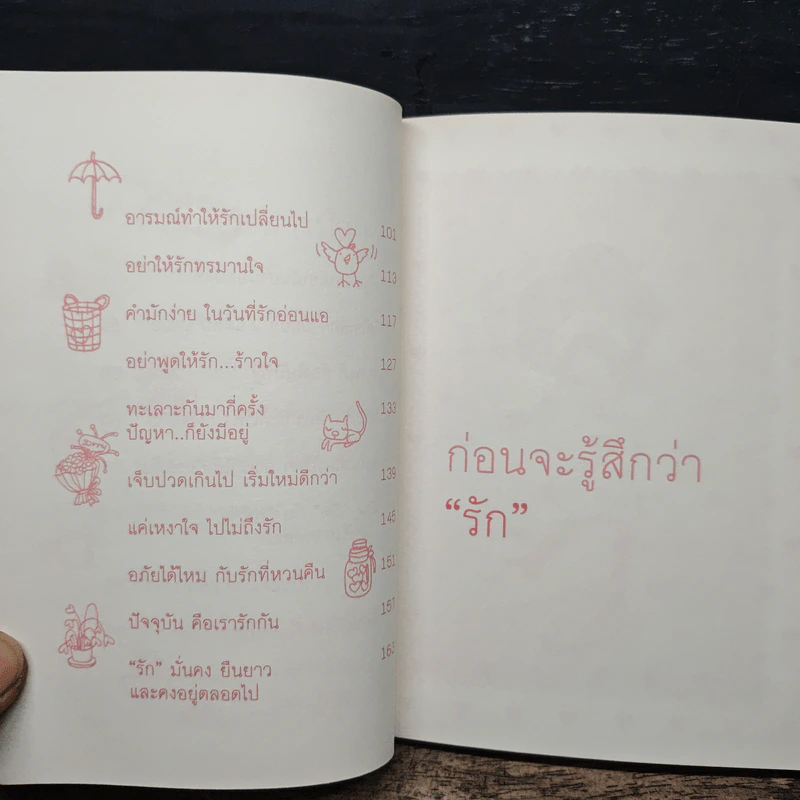 อารมณ์ทำให้รักเปลี่ยนไป 101
อย่าให้รักทรมานใจ 113
คำมักง่าย ในวันที่รักอ่อนแอ 117
อย่าพูดให้รัก...ร้าวใจ 127
ทะเลาะกันมากี่ครั้ง 133
ปัญหา..ก็ยังมีอยู่
เจ็บปวดเกินไป เริ่มใหม่ดีกว่า 139
แค่เหงาใจ ไปไม่ถึงรัก 145
อภัยได้ไหม กับรักที่หวนคืน 151
ปัจจุบัน คือเรารักกัน 157
“รัก” มั่นคง ยืนยาว 163
และคงอยู่ตลอดไป
ก่อนจะรู้สึกว่า
“รัก”